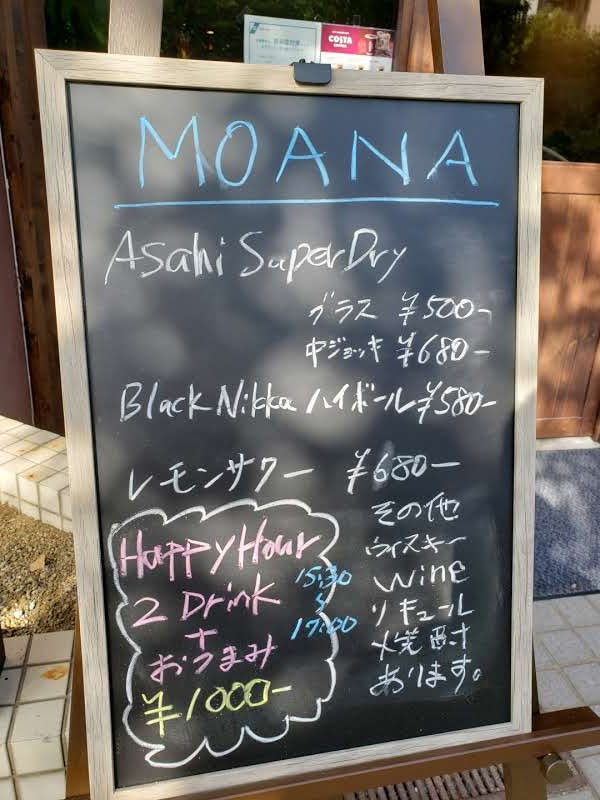 COSTA
COFFEE
MOANA
Asahi SuperDry
グラス ¥500-
中ジョッキ ¥680-
Black Nikka ハイボール ¥580-
レモンサワー ¥680-
Happy Hour
2 Drink
+
おつまみ
¥1000-
15:30
〜
17:00
その他
ウィスキー
wine
リキュール
焼酎
あります。